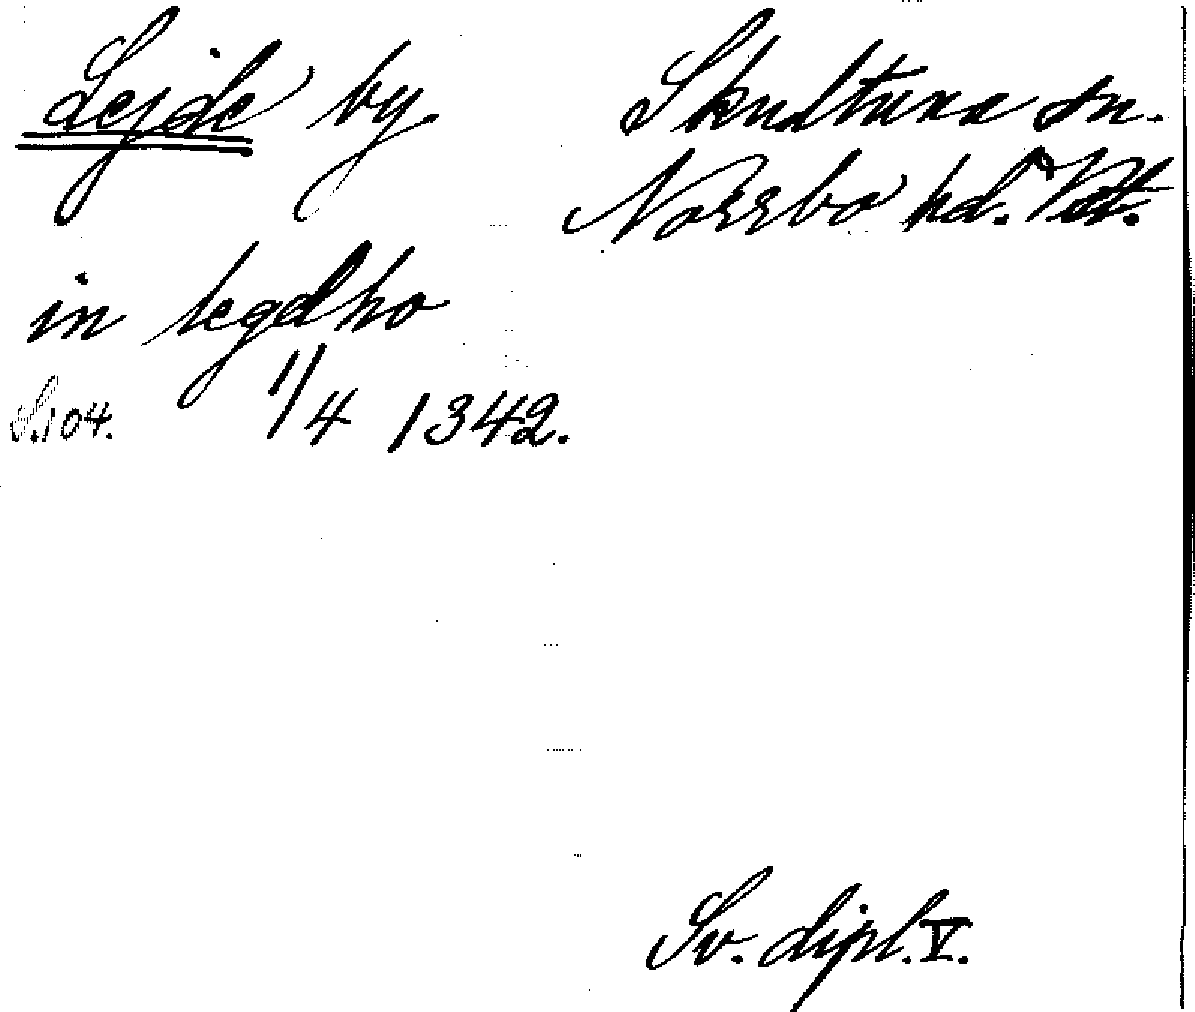 Lejde by Skultuna sn.
Norrbo hd. Vstm.
in legdho
S. 104. 1/4 1342.
Sv. dipl. V.